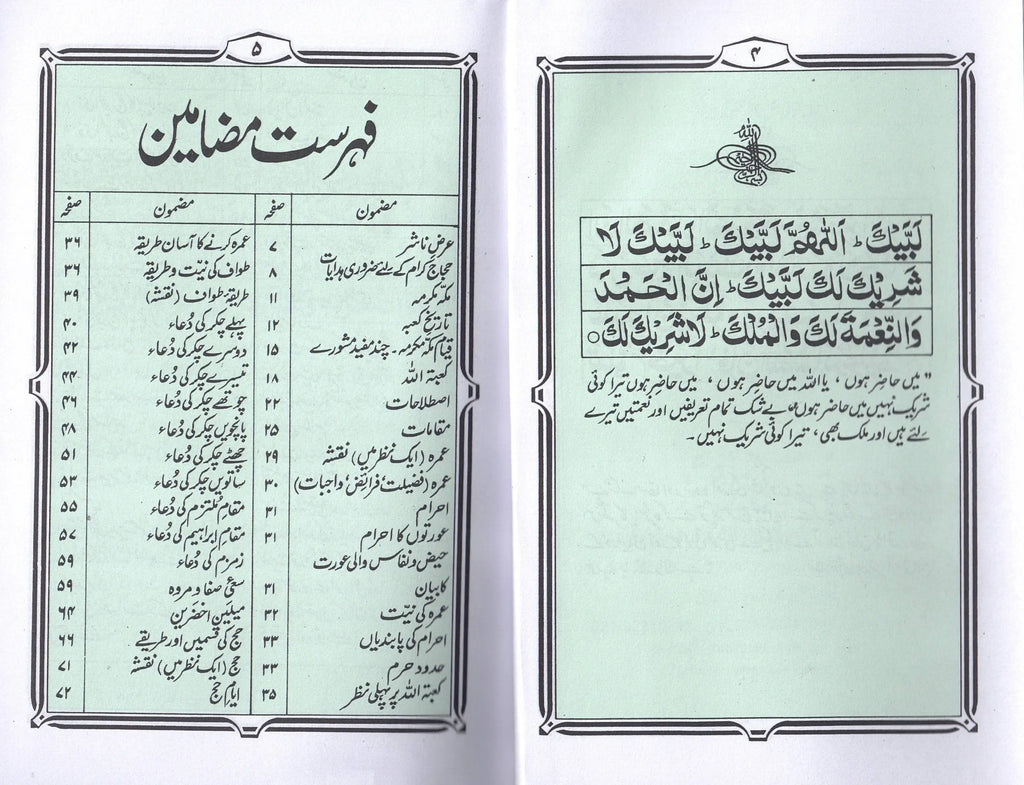 ۴
لَبَّيْكَ ط اَللّٰهُمَّ لَبَّيْكَ ط لَبَّيْكَ لَا
شَرِيْكَ لَكَ لَبَّيْكَ ط اِنَّ الْحَمْدَ
وَالنِّعْمَةَ لَكَ وَالْمُلْكَ ط لَا شَرِيْكَ لَكَ ○
"میں حاضر ہوں، یا اللہ میں حاضر ہوں، میں حاضر ہوں تیرا کوئی
شریک نہیں میں حاضر ہوں، بے شک تمام تعریفیں اور نعمتیں تیرے
لئے ہیں اور ملک بھی، تیرا کوئی شریک نہیں۔
۵
فہرست مضامین
مضمون صفحہ مضمون صفحہ
عرض ناشر ۷ عمرہ کرنے کا آسان طریقہ ۳۶
حجاج کرام کے لئے ضروری ہدایات ۸ طواف کی نیّت و طریقہ ۳۶
مکّہ مکرمہ ۱۱ طریقۂ طواف (نقشہ) ۳۹
تاریخ کعبہ ۱۲ پہلے چکر کی دُعاء ۴۰
قیام مکّہ مکرمہ۔ چند مفید مشورے ۱۵ دوسرے چکر کی دُعاء ۴۲
کعبۃ اللہ ۱۸ تیسرے چکر کی دُعاء ۴۴
اصطلاحات ۲۲ چوتھے چکر کی دُعاء ۴۶
مقامات ۲۵ پانچویں چکر کی دُعاء ۴۸
عمرہ (ایک نظر میں) نقشہ ۲۹ چھٹے چکر کی دُعاء ۵۱
عمرہ (فضیلت فرائض، واجبات) ۳۰ ساتویں چکر کی دُعاء ۵۳
احرام ۳۱ مقام مُلتزم کی دُعاء ۵۵
عورتوں کا احرام ۳۱ مقام ابراہیم کی دُعاء ۵۷
حیض و نفاس والی عورت زمزم کی دُعاء ۵۹
کا بیان ۳۱ سعئ صفا و مروہ ۵۹
عمرہ کی نیّت ۳۲ میلین اخضرین ۶۴
احرام کی پابندیاں ۳۳ حج کی قسمیں اور طریقے ۶۶
حدود حرم ۳۳ حج (ایک نظر میں) نقشہ ۷۱
کعبۃ اللہ پر پہلی نظر ۳۵ ایام حج ۷۲